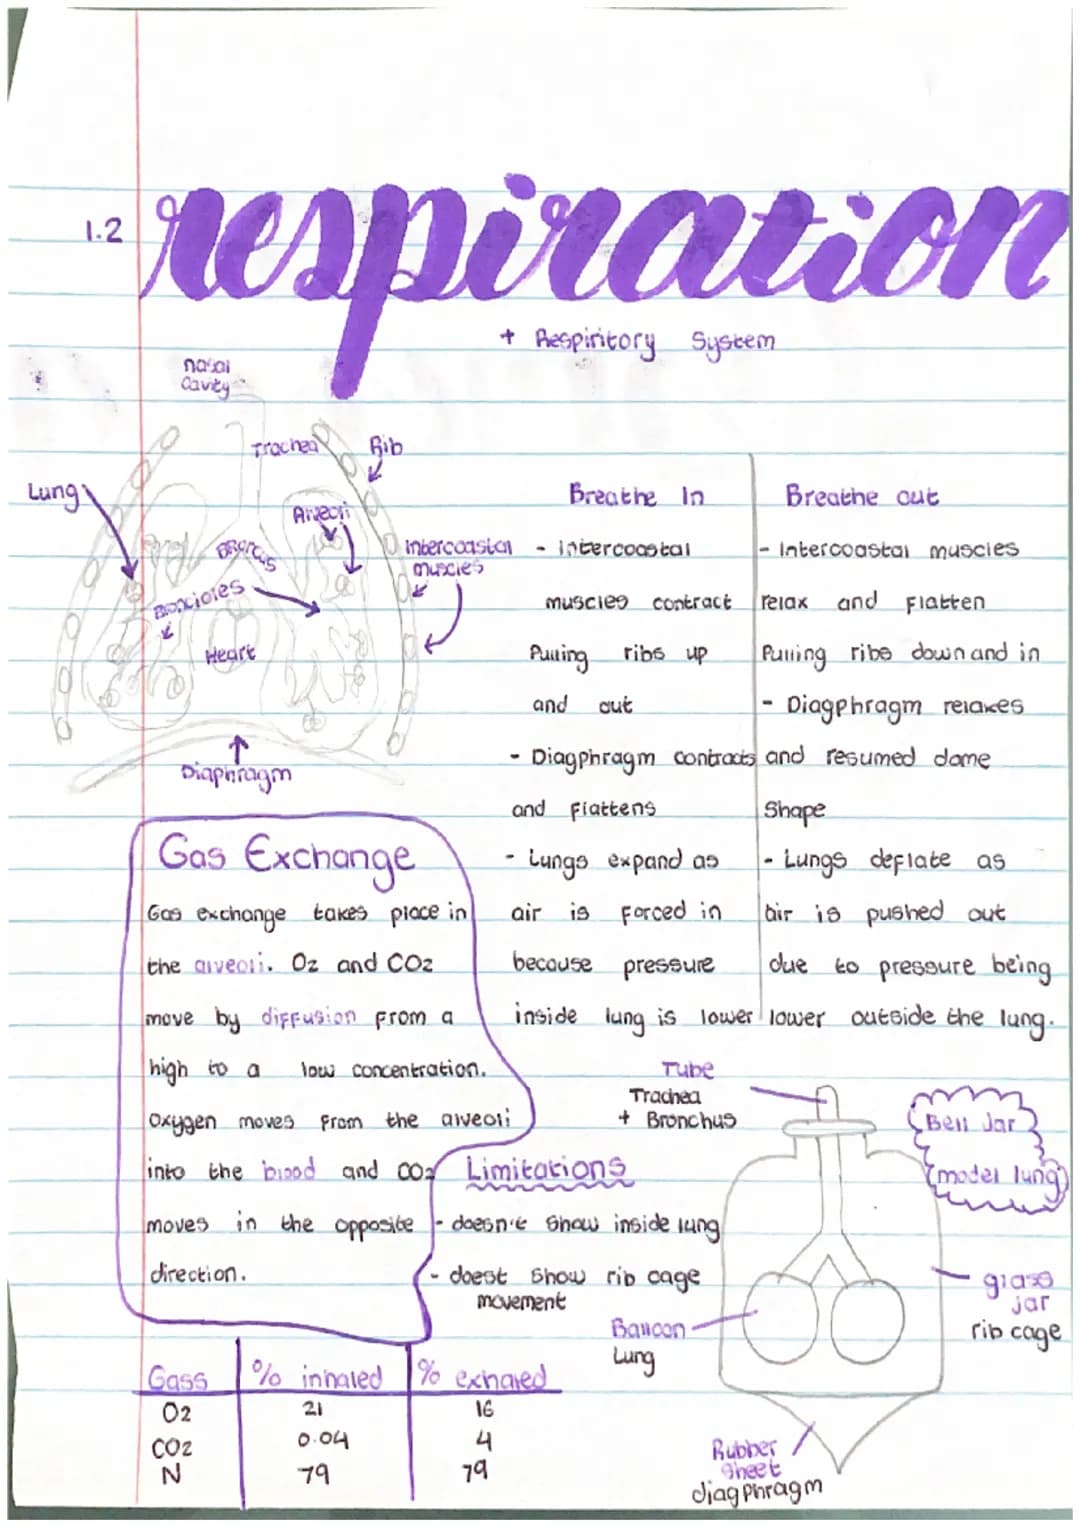 1.2
respiration
+ Respiritory System
nasal
cavity
Trachea
Rib
Lung
Alveoli
Broncus
Intercoastal
muscles
Broncioles
Heart
Diaphragm
Breathe In
- intercoastal
muscles contract
Pulling ribs up
and out
- Diagphragm contracts
and flattens
- Lungs expand as
air is forced in
because pressure
inside lung is lower
Breathe out
- Intercoastal muscles
relax and flatten
Pulling ribs down and in
- Diagphragm relaxes
and resumed dome
shape
- Lungs deflate as
air is pushed out
due to pressure being
lower outside the lung.
Gas Exchange
Gas exchange takes place in
the alveoli. O2 and CO2
move by diffusion from a
high to a low concentration.
Oxygen moves from the alveoli
into the blood and CO2
moves in the opposite
direction.
Limitations
- doesn't show inside lung
- doest show rib cage
movement
Tube
Trachea
+ Bronchus
Bell Jar
(model lung)
glass
jar
rib cage
Balloon
Lung
Rubber
sheet
diagphragm
Gass % inhaled % exhaled
O2 21 16
CO2 0.04 4
N 79 79